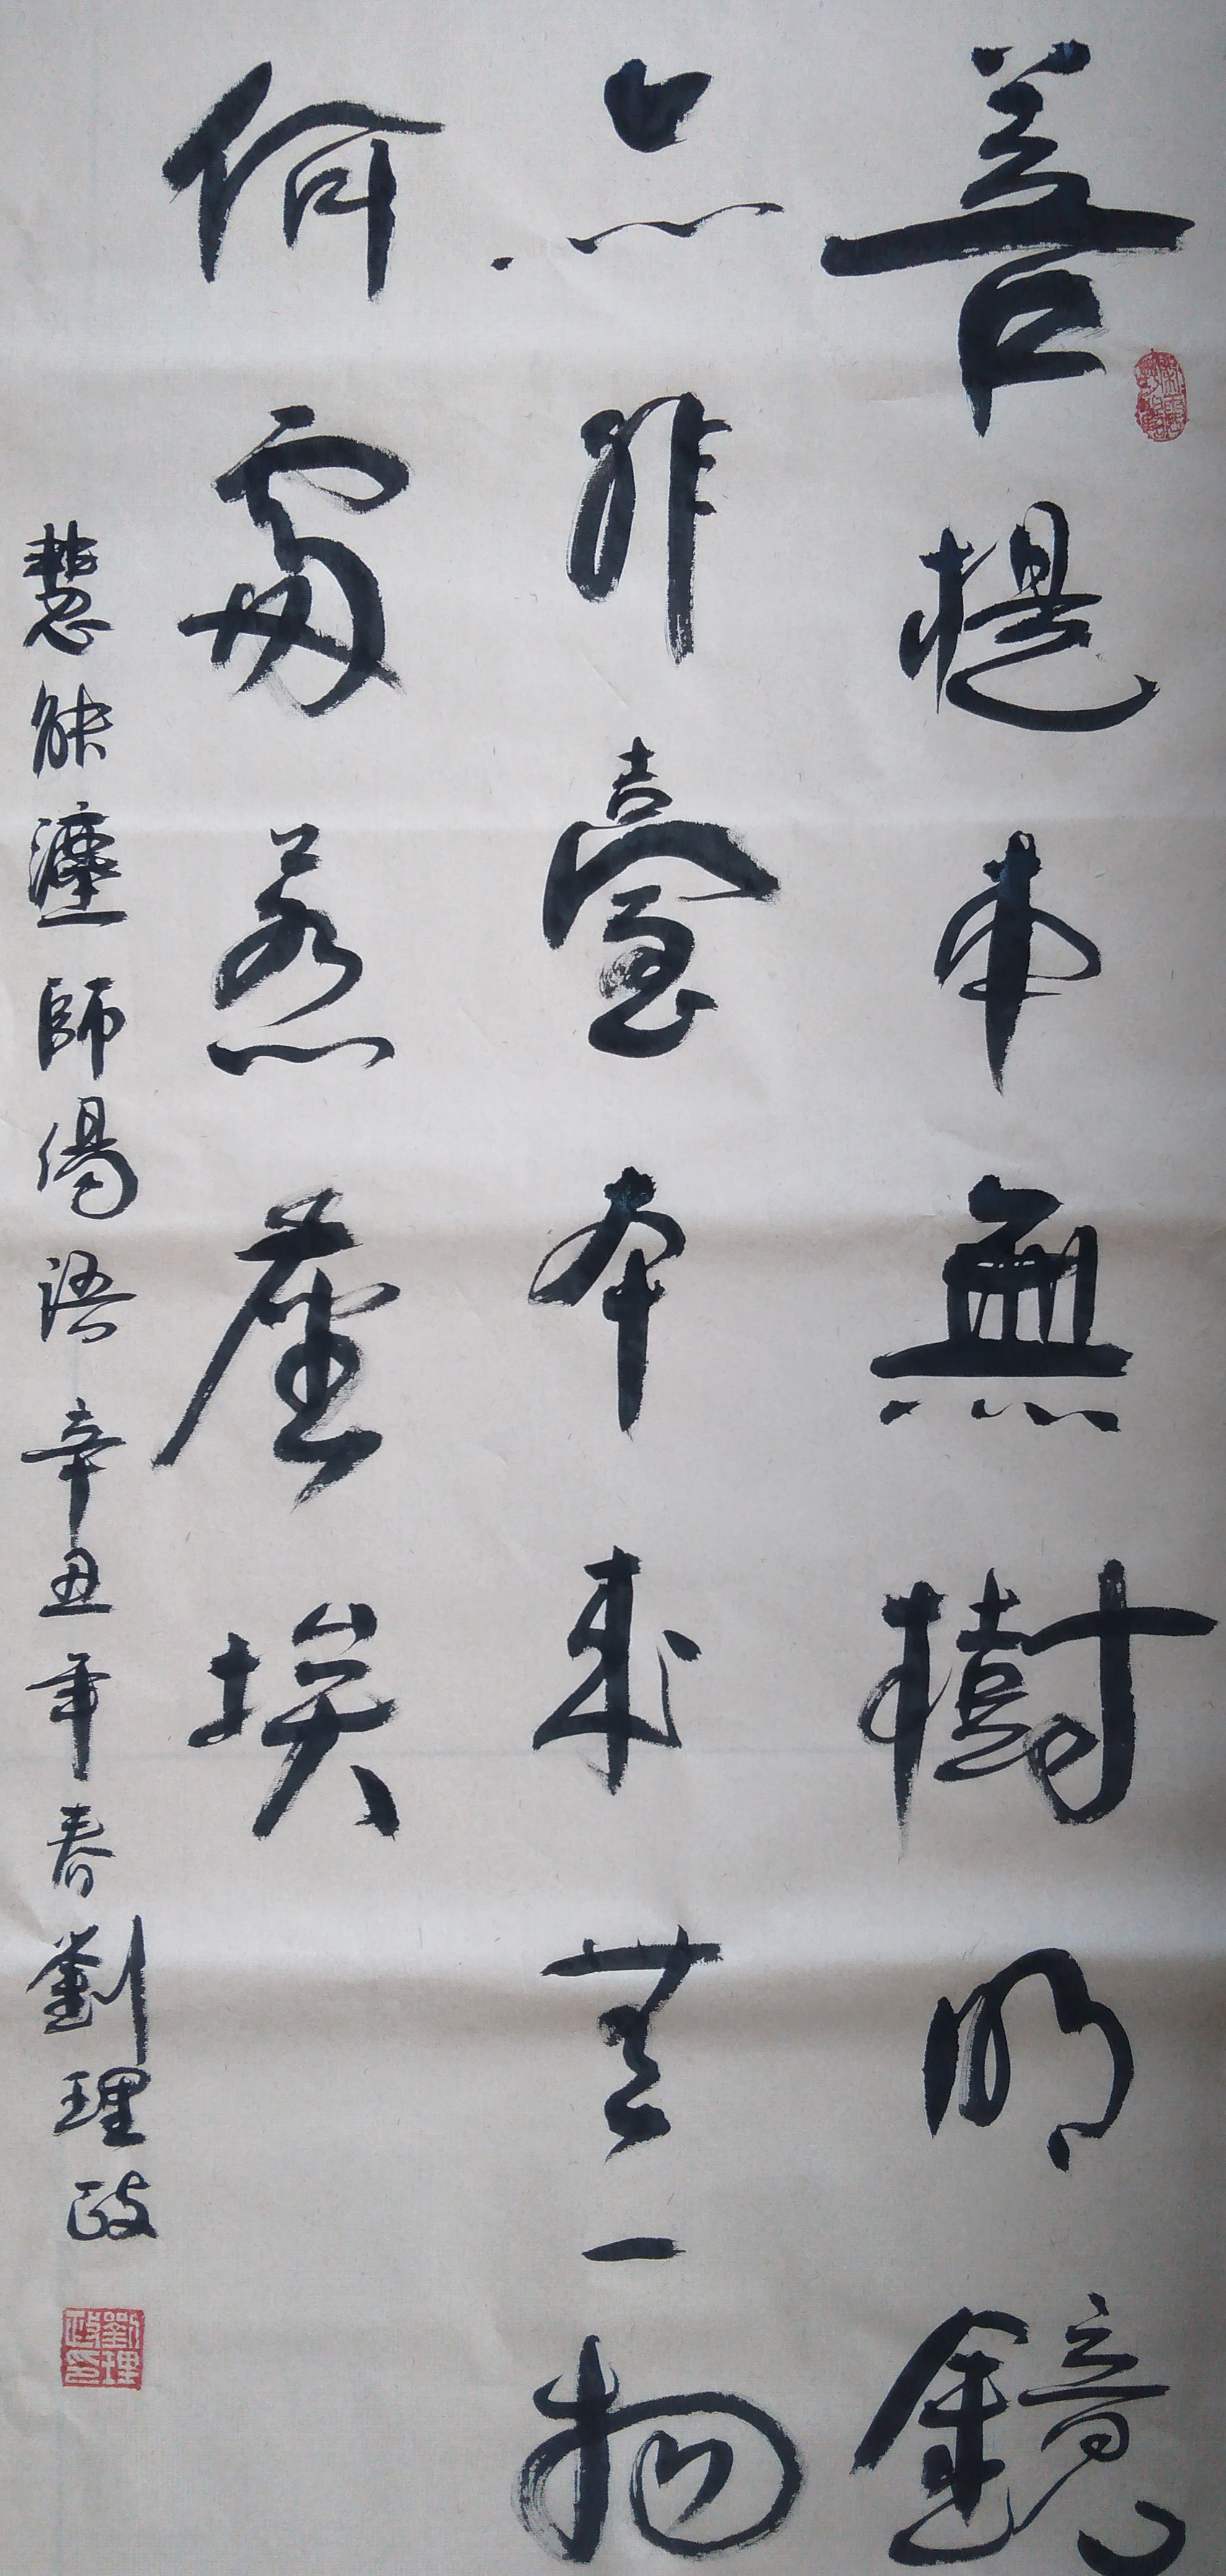 菩提本無樹明鏡
亦非臺本来無一物
何處惹塵埃
慧能師偈語辛丑年春劉理政
劉理政印